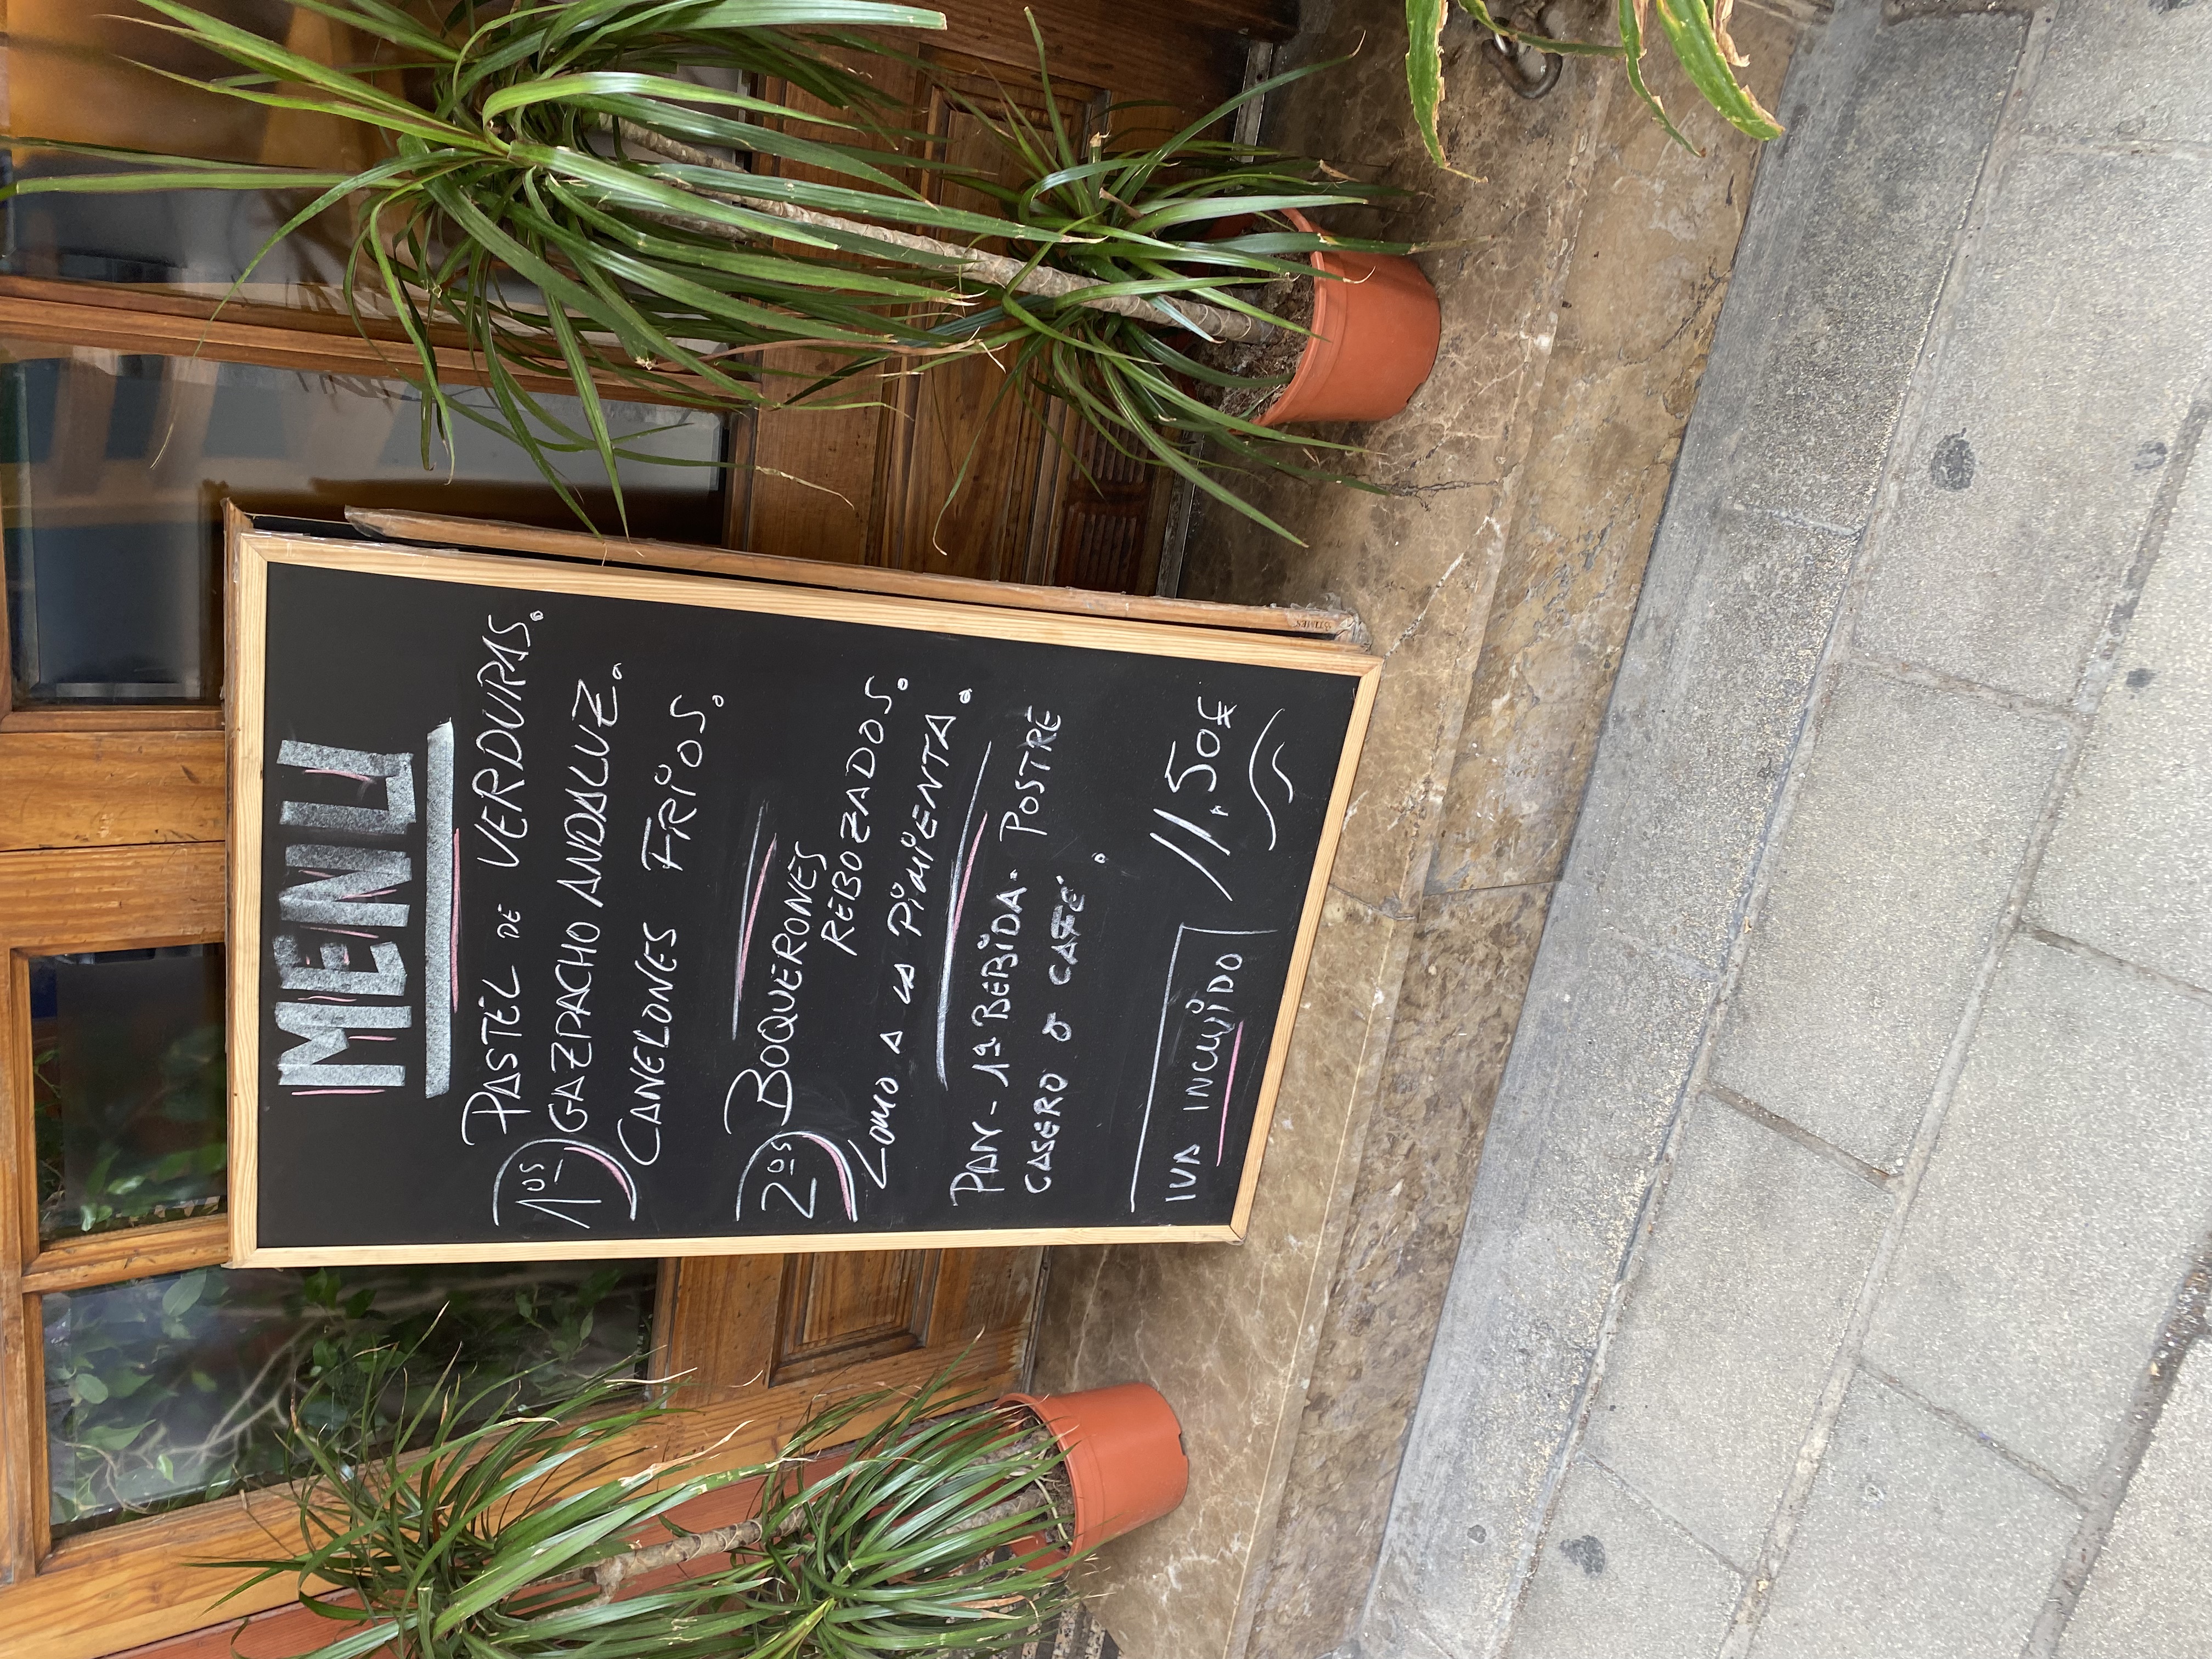 MENU
1os
PASTEL DE VERDURAS.
GAZPACHO ANDALUZ.
CANELONES FRIOS.
2os
BOQUERONES
REBOZADOS.
LOMO A LA PIMIENTA.
PAN - 1ª BEBIDA - POSTRE
CASERO O CAFÉ.
IVA INCLUIDO
11,50€